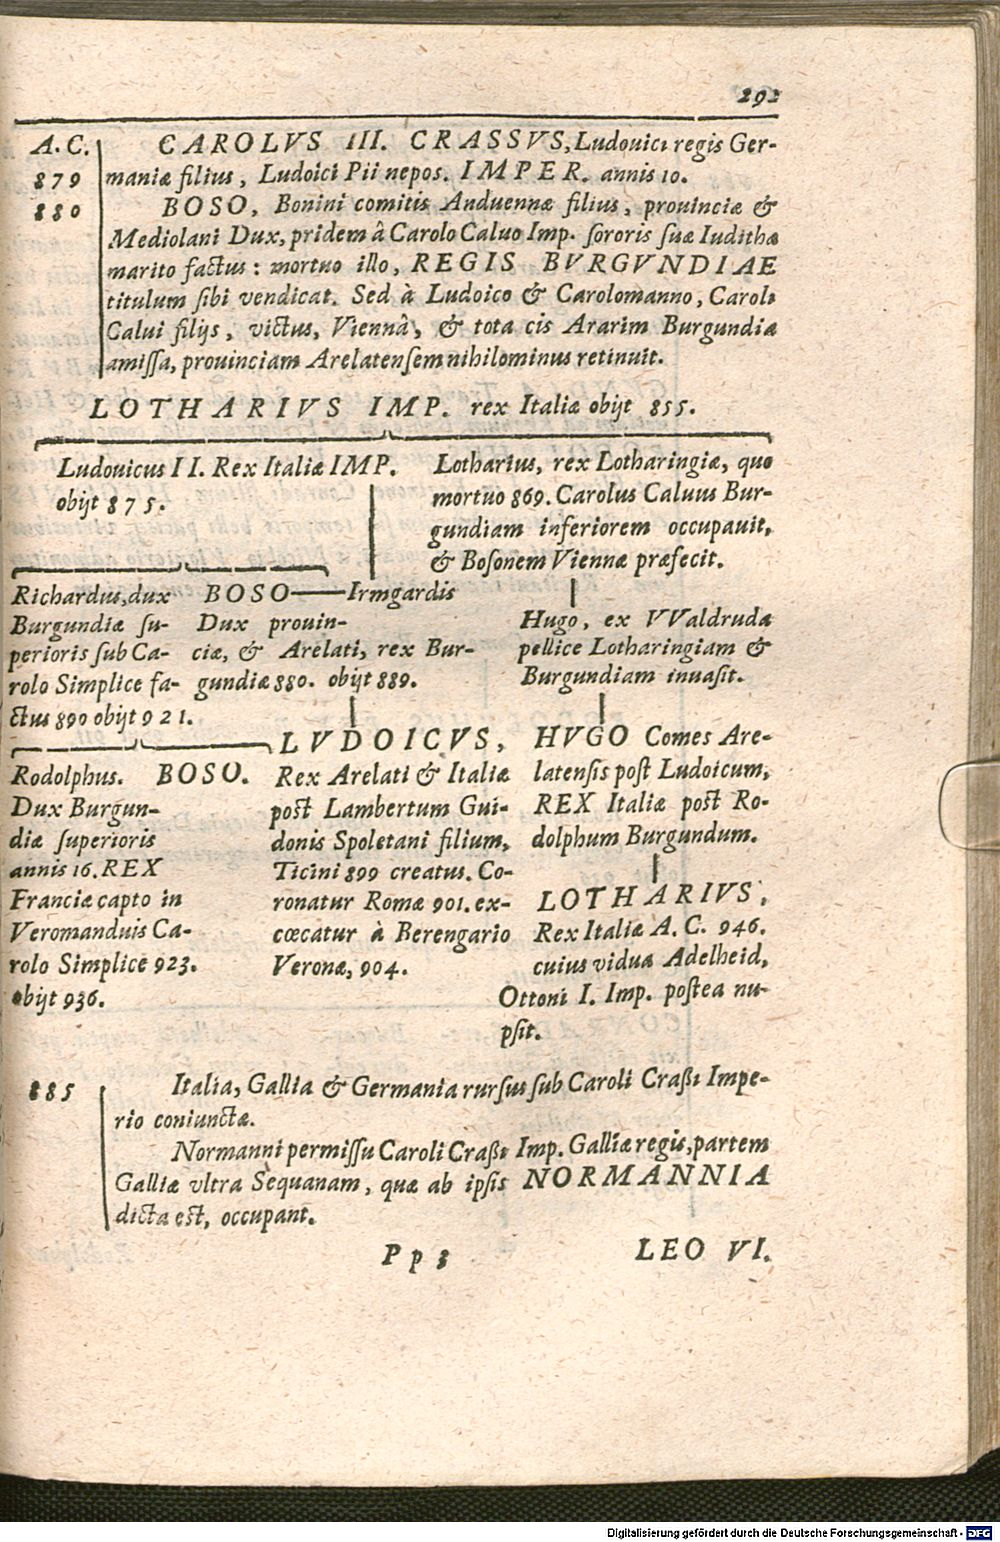 292
A. C. CAROLVS III. CRASSVS, Ludouici regis Ger-
879 maniæ filius, Ludoici Pii nepos. IMPER. annis 10.
880 BOSO, Bonini comitis Anduennæ filius, prouinciæ &
Mediolani Dux, pridem â Carolo Caluo Imp. sororis suæ Iudithæ
marito factus: mortuo illo, REGIS BVRGVNDIAE
titulum sibi vendicat. Sed à Ludoico & Carolomanno, Caroli
Calui filijs, victus, Viennâ, & tota cis Ararim Burgundia
amissa, prouinciam Arelatensem nihilominus retinuit.
LOTHARIVS IMP. rex Italiæ obijt 855.
Ludouicus II. Rex Italiæ IMP.
obijt 875.
Lotharius, rex Lotharingiæ, quo
mortuo 869. Carolus Caluus Bur-
gundiam inferiorem occupauit,
& Bosonem Viennæ præfecit.
Richardus, dux
Burgundiæ su-
perioris sub Ca-
rolo Simplice fa-
ctus 890 obijt 921.
BOSO — Irmgardis
Dux prouin-
ciæ, & Arelati, rex Bur-
gundiæ 880. obijt 889.
Hugo, ex VValdruda
pellice Lotharingiam &
Burgundiam inuasit.
Rodolphus.
Dux Burgun-
diæ superioris
annis 16. REX
Franciæ capto in
Veromanduis Ca-
rolo Simplice 923.
obijt 936.
BOSO.
LVDOICVS,
Rex Arelati & Italiæ
post Lambertum Gui-
donis Spoletani filium,
Ticini 899 creatus. Co-
ronatur Romæ 901. ex-
cœcatur à Berengario
Veronæ, 904.
HVGO Comes Are-
latensis post Ludoicum,
REX Italiæ post Ro-
dolphum Burgundum.
LOTHARIVS,
Rex Italiæ A. C. 946.
cuius vidua Adelheid,
Ottoni I. Imp. postea nu-
psit.
885 Italia, Gallia & Germania rursus sub Caroli Crassi Impe-
rio coniunctæ.
Normanni permissu Caroli Crassi Imp. Galliæ regis, partem
Galliæ vltra Sequanam, quæ ab ipsis NORMANNIA
dicta est, occupant.
Pp 3
LEO VI.
Digitalisierung gefördert durch die Deutsche Forschungsgemeinschaft - DFG